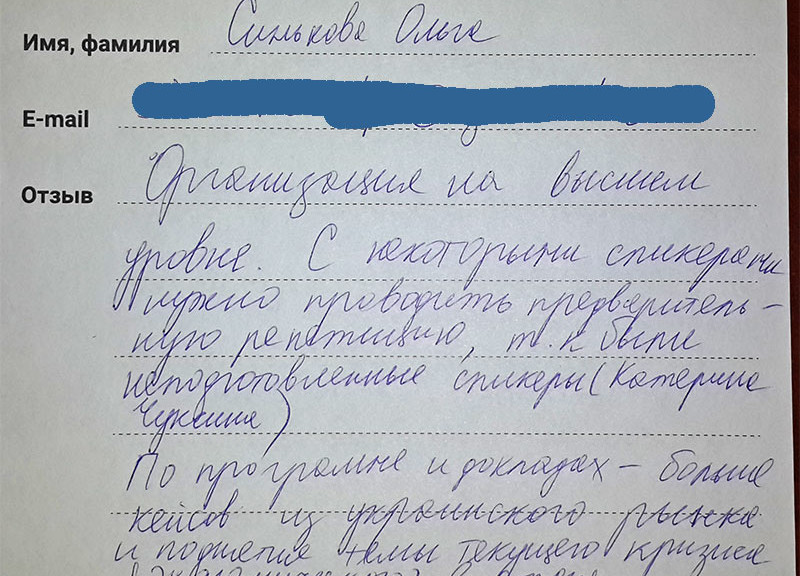 Имя, фамилия Синькова Ольга
E-mail
Отзыв Организация на высшем
уровне. С некоторыми спикерами
нужно проводить предваритель-
ную репетицию, т.к были
неподготовленные спикеры (Катерина
Чуксина)
По программе и докладах - больше
кейсов из украинского рынка
и поднятие темы текущего кризиса